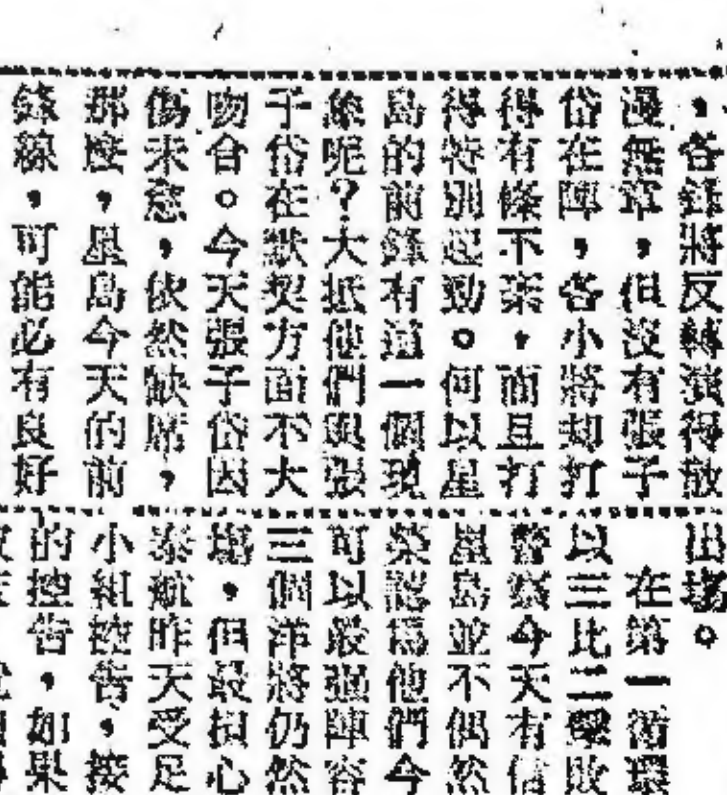 ，各鋒將反轉演得散
漫無章，但沒有張子
岱在陣，各小將却打
得有條不紊，而且打
得特別起勁。何以星
島的前鋒有這一個現
象呢？大抵他們與張
子岱在默契方面不大
吻合。今天張子岱因
傷未愈，依然缺席，
那麼，星島今天的前
鋒線，可能必有良好
出場。
在第一循環
以三比二擊敗
警察今天有信
星島並不偶然
榮認爲他們今
可以最強陣容
三個洋將仍然
場，但最担心
泰航昨天受足
小組控告，接
的控告，如果